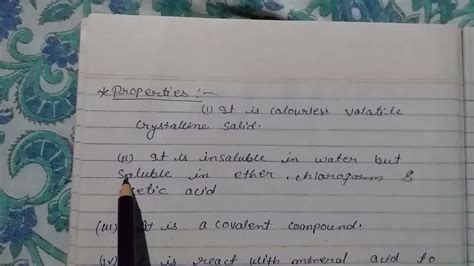 * Properties :-
(i) It is colourless volatile
Crystalline Solid.
(ii) It is insoluble in water but
Soluble in ether, chloroform &
etic acid
(iii) It is a covalent compound.
(iv) is react with mineral acid to